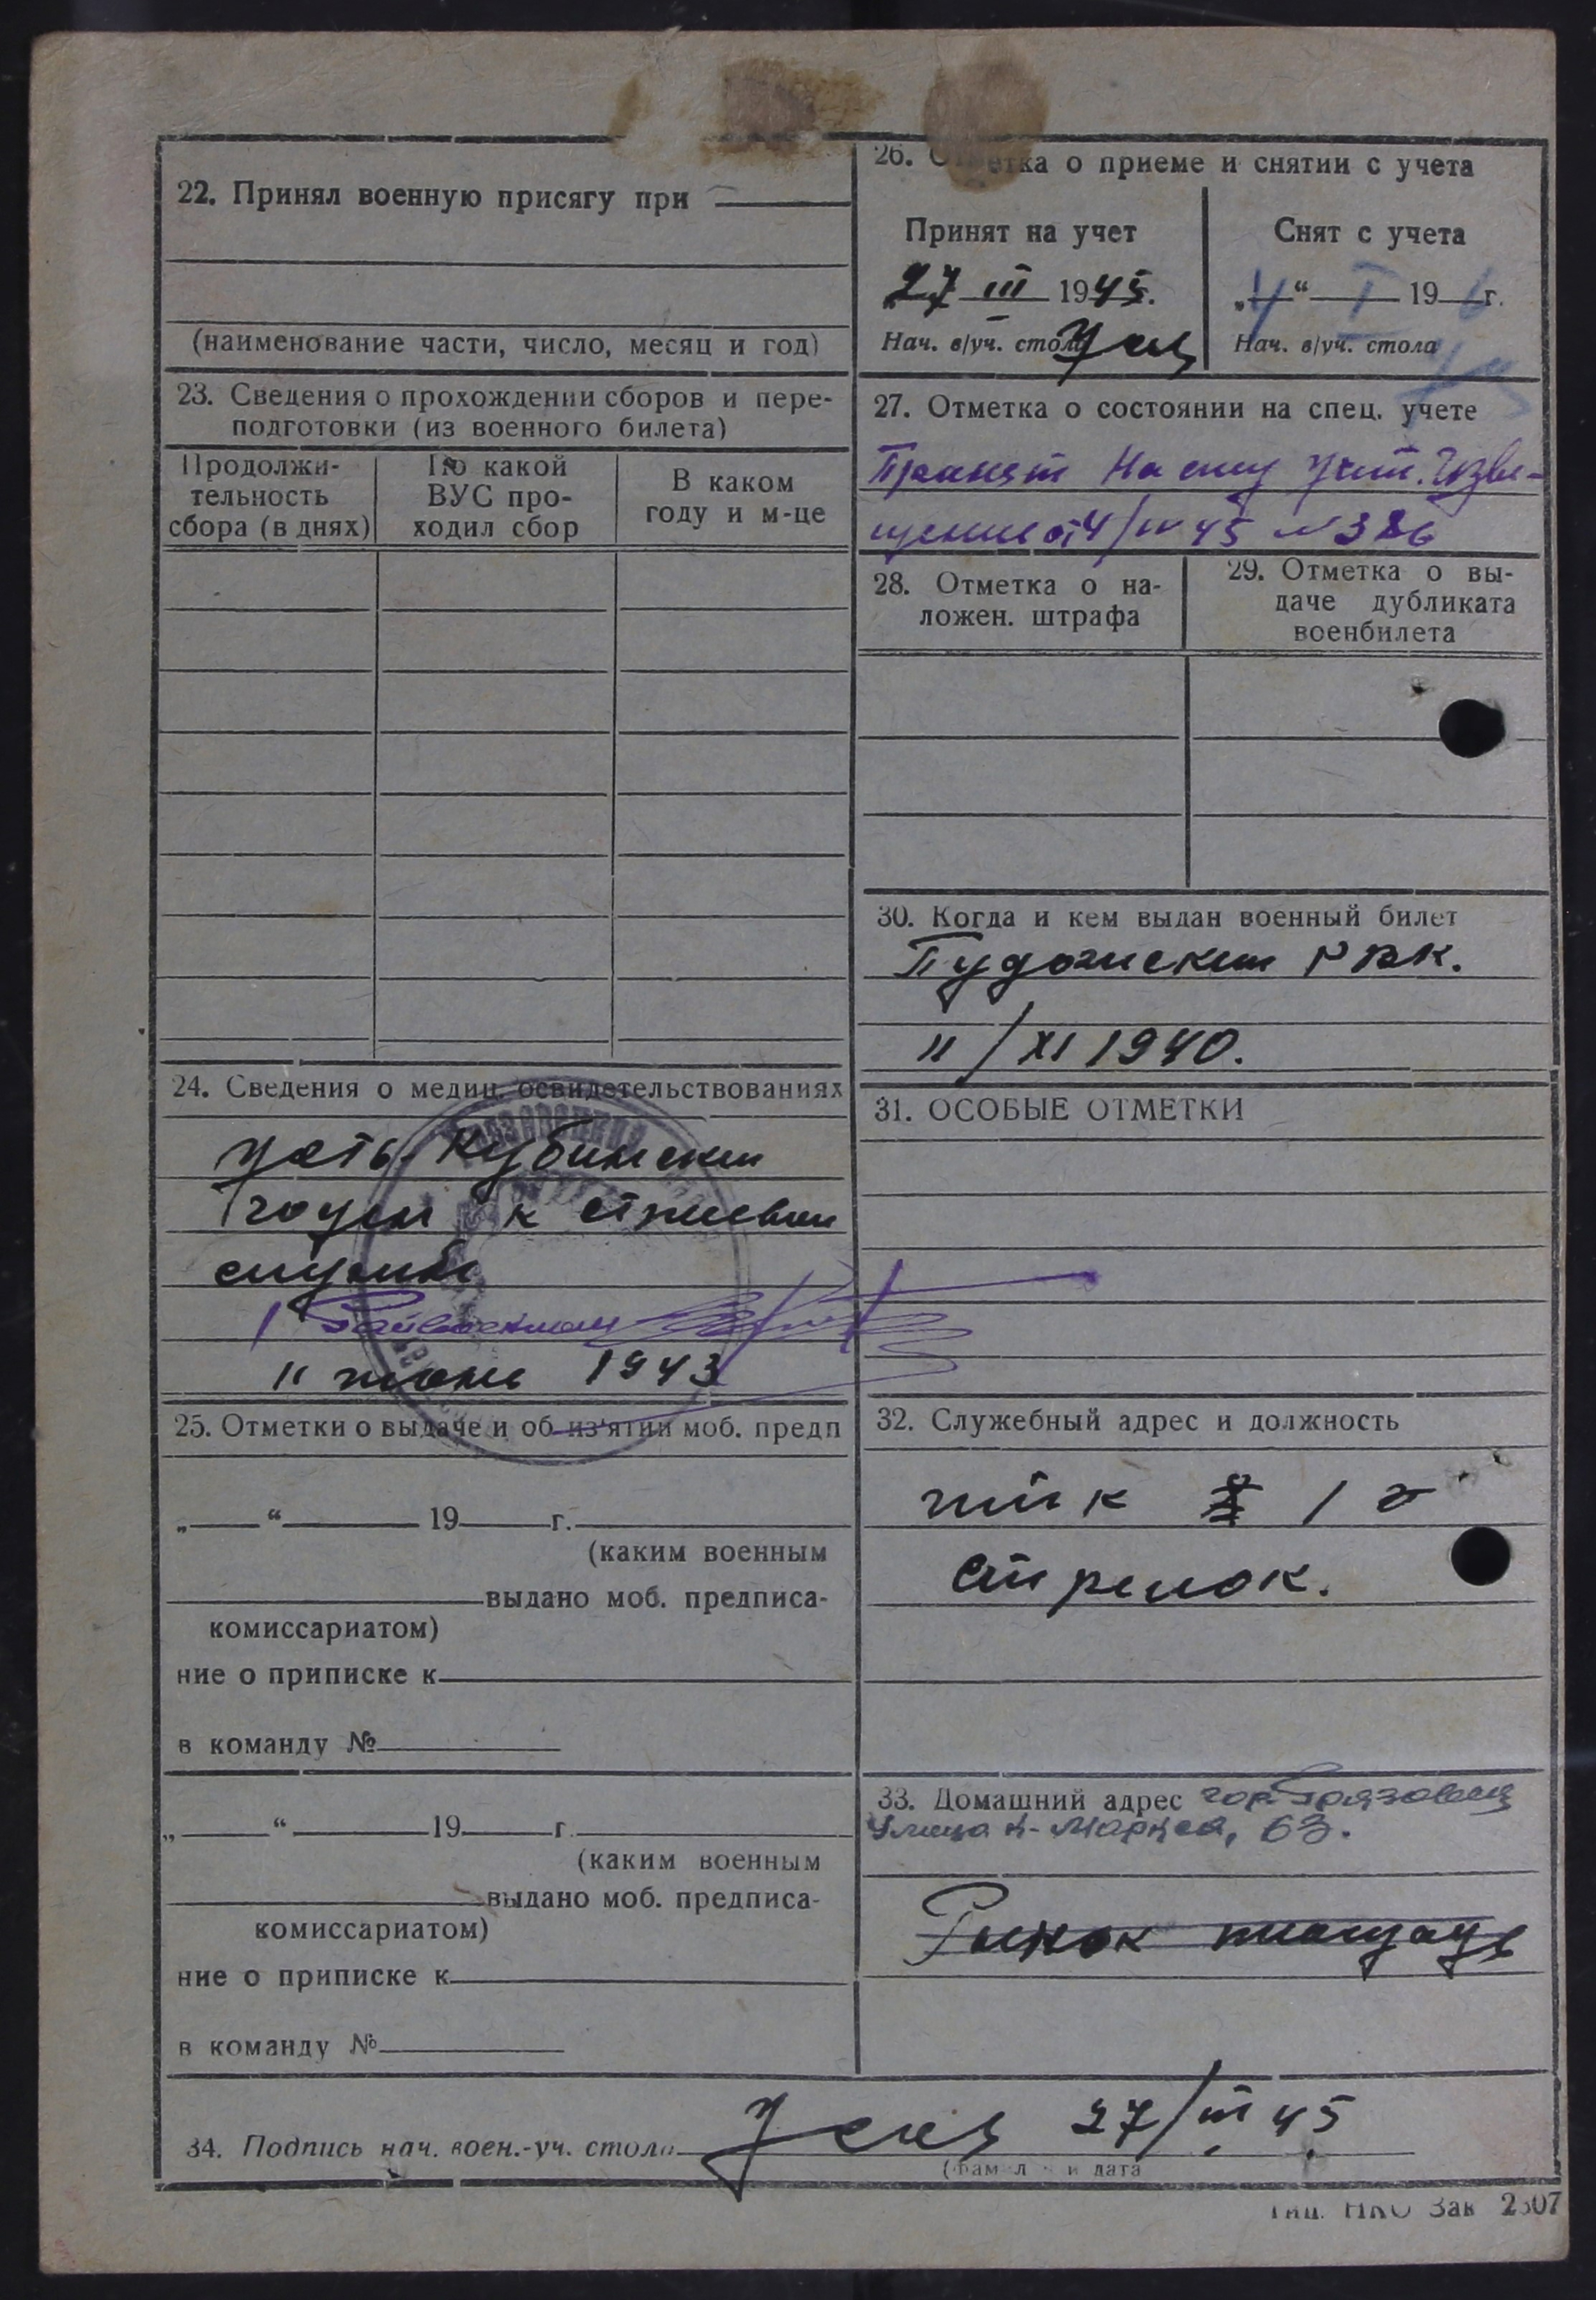 22. Принял военную присягу при
(наименование части, число, месяц и год)
23. Сведения о прохождении сборов и пере-
подготовки (из военного билета)
Продолжи-
тельность
сбора (в днях)
По какой
ВУС про-
ходил сбор
В каком
году и м-це
24. Сведения о медиц. освидетельствованиях
Усть-Кубинским
годен к
службе
Райвоенком
11 июнь 1943
25. Отметки о выдаче и об из'ятии моб. предп
„ “ 19 г.
(каким военным
выдано моб. предписа-
комиссариатом)
ние о приписке к
в команду №
„ “ 19 г.
(каким военным
выдано моб. предписа-
комиссариатом)
ние о приписке к
в команду №
26. Отметка о приеме и снятии с учета
Принят на учет
27 III 1945.
Нач. в/уч. стола
Снят с учета
„4“ I 19 6 г.
Нач. в/уч. стола
27. Отметка о состоянии на спец. учете
Принят на спец учет. Изве-
щение от 4/IV 45 №386
28. Отметка о на-
ложен. штрафа
29. Отметка о вы-
даче дубликата
военбилета
30. Когда и кем выдан военный билет
Пудожским РВК.
11/XI 1940.
31. ОСОБЫЕ ОТМЕТКИ
32. Служебный адрес и должность
1
Стрелок.
33. Домашний адрес гор. Грязовец
Улица К-Маркса, 63.
Рынок площадь
34. Подпись нач. воен.-уч. стола 27/III 45
Тип. НКО Зак 2307